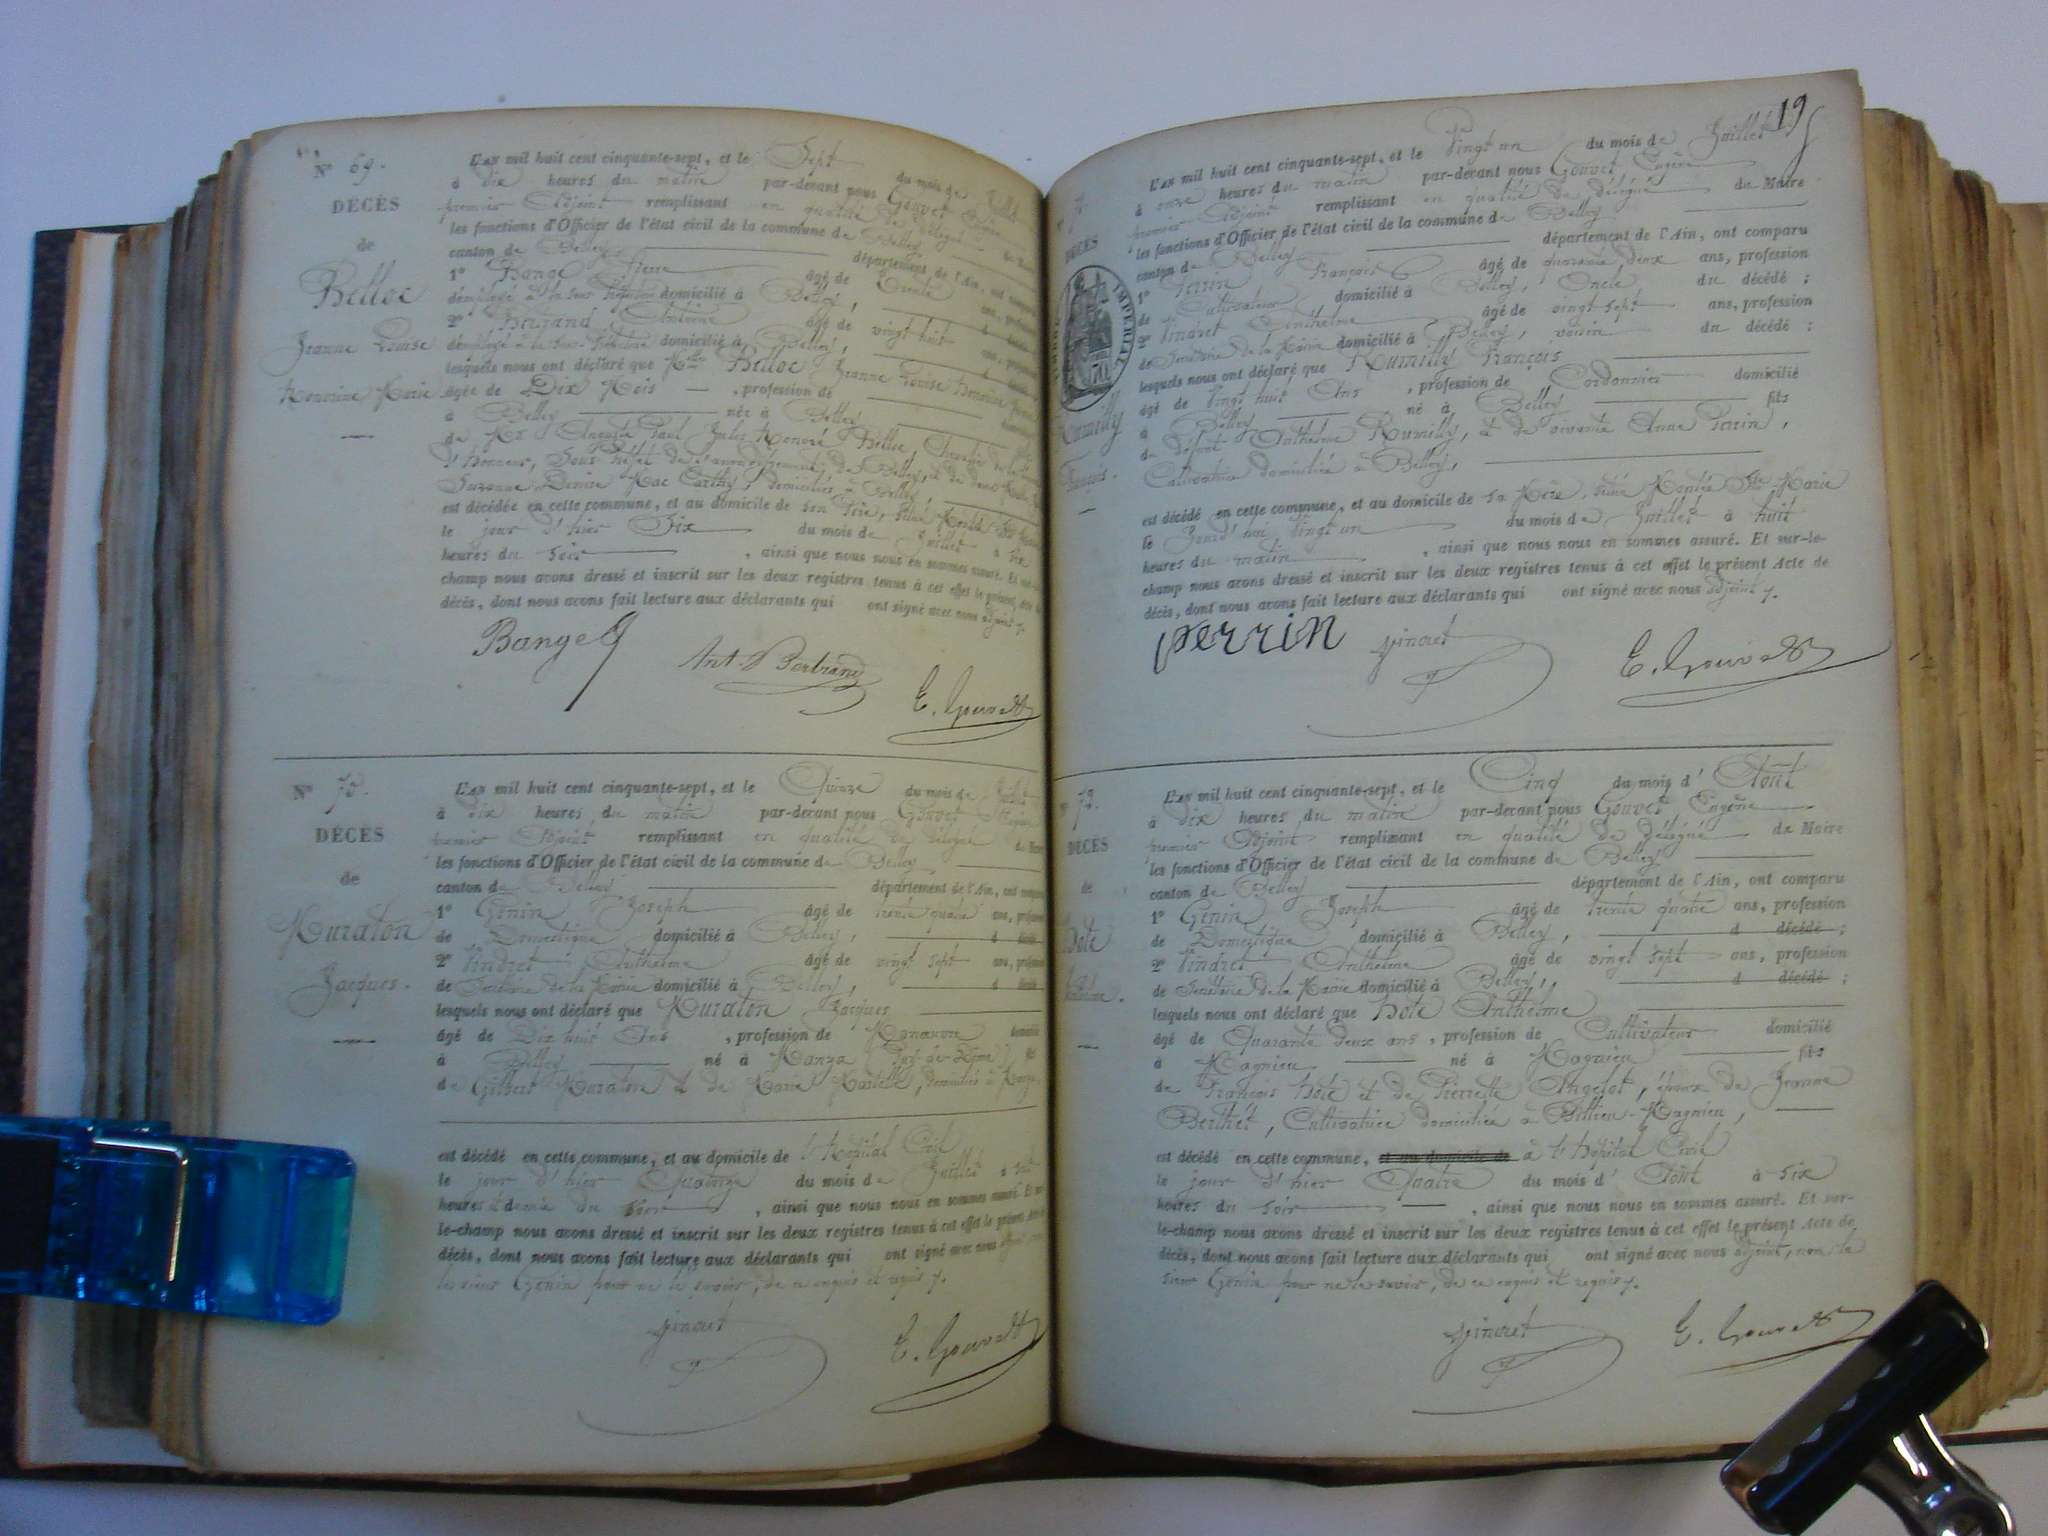 Nº 69.
DÉCÈS
de
Belloc
Jeanne Louise
Honorine Marie
L'an mil huit cent cinquante-sept, et le Sept du mois de Juillet
à dix heures du matin par-devant nous Gouvet Eugène
premier Adjoint remplissant en qualité de délégué du Maire
les fonctions d'Officier de l'état civil de la commune de Belley
canton de Belley département de l'Ain, ont comparu
1º Bange Pierre âgé de trente ans, profession
d'employé à la Sous-Préfecture domicilié à Belley,
2º Bertrand Antoine âgé de vingt huit ans, profession
d'employé à la Sous-Préfecture domicilié à Belley,
lesquels nous ont déclaré que Belloc Jeanne Louise Honorine Marie
âgée de Dix Mois, profession de
à Belley née à Belley
de Mr Auguste Paul Jules Honoré Belloc, Chevalier de la
d'honneur, Sous-Préfet de l'arrondissement de Belley, et de dame
Suzanne Denise Mac Carthy, domiciliés à Belley,
est décédée en cette commune, et au domicile de son Père,
le jour d'hier Six du mois de Juillet à Six
heures du soir, ainsi que nous nous en sommes assuré. Et sur-le-
champ nous avons dressé et inscrit sur les deux registres tenus à cet effet le présent Acte de
décès, dont nous avons fait lecture aux déclarants qui ont signé avec nous adjoint.
Bange
Ant. Bertrand
E. Gouvet
Nº 70.
DÉCÈS
de
Muraton
Jacques.
L'an mil huit cent cinquante-sept, et le Quinze du mois de Juillet
à dix heures du matin par-devant nous Gouvet Eugène
premier Adjoint remplissant en qualité de délégué du Maire
les fonctions d'Officier de l'état civil de la commune de Belley
canton de Belley département de l'Ain, ont comparu
1º Genin Joseph âgé de trente quatre ans, profession
de Domestique domicilié à Belley, d décédé
2º Vindret Anthelme âgé de vingt sept ans, profession
de Secrétaire de la Mairie domicilié à Belley, d décédé
lesquels nous ont déclaré que Muraton Jacques
âgé de Dix huit Ans, profession de domicilié
à Belley né à Manza (Puy-de-Dôme) fils
de Gilbert Muraton et de Marie Martelle, domiciliés à Manza,
est décédé en cette commune, et au domicile de l'Hôpital Civil
le jour d'hier Quatorze du mois de Juillet à
heures et demie du soir, ainsi que nous nous en sommes assuré. Et sur-
le-champ nous avons dressé et inscrit sur les deux registres tenus à cet effet le présent Acte de
décès, dont nous avons fait lecture aux déclarants qui ont signé avec nous adjoint non
le sieur Genin pour ne le savoir, de ce enquis et requis.
Vindret
E. Gouvet
19
DÉCÈS
TIMBRE IMPERIAL
70
Rumilly
François.
L'an mil huit cent cinquante-sept, et le Vingt un du mois de Juillet
à onze heures du matin par-devant nous Gouvet Eugène
premier Adjoint remplissant en qualité de délégué du Maire
les fonctions d'Officier de l'état civil de la commune de Belley
canton de Belley département de l'Ain, ont comparu
1º Perrin François âgé de quarante deux ans, profession
de Cultivateur domicilié à Belley, Oncle du décédé ;
2º Vindret Anthelme âgé de vingt sept ans, profession
de Secrétaire de la Mairie domicilié à Belley, voisin du décédé ;
lesquels nous ont déclaré que Rumilly François
âgé de Vingt huit Ans, profession de Cordonnier domicilié
à Belley né à Belley fils
de défunt Anthelme Rumilly, et de vivante Anne Perrin,
Cultivatrice domiciliée à Belley,
est décédé en cette commune, et au domicile de sa Mère, située Montée Ste Marie
le Jourd'hui, Vingt un du mois de Juillet à huit
heures du matin, ainsi que nous nous en sommes assuré. Et sur-le-
champ nous avons dressé et inscrit sur les deux registres tenus à cet effet le présent Acte de
décès, dont nous avons fait lecture aux déclarants qui ont signé avec nous adjoint.
Perrin
Vindret
E. Gouvet
72.
DÉCÈS
de
Hote
Anthelme.
L'an mil huit cent cinquante-sept, et le Cinq du mois d'Août
à dix heures du matin par-devant nous Gouvet Eugène
premier Adjoint remplissant en qualité de délégué du Maire
les fonctions d'Officier de l'état civil de la commune de Belley
canton de Belley département de l'Ain, ont comparu
1º Genin Joseph âgé de trente quatre ans, profession
de Domestique domicilié à Belley, d décédé ;
2º Vindret Anthelme âgé de vingt sept ans, profession
de Secrétaire de la Mairie domicilié à Belley, d décédé ;
lesquels nous ont déclaré que Hote Anthelme
âgé de Quarante deux ans, profession de Cultivateur domicilié
à Magnieu né à Magnieu fils
de François Hote et de Pierrette Angelot, époux de Jeanne
Berthet, Cultivatrice domiciliée à Billieu-Magnieu,
est décédé en cette commune, et au domicile de à l'Hôpital Civil
le jour d'hier Quatre du mois d'Août à Six
heures du soir, ainsi que nous nous en sommes assuré. Et sur-
le-champ nous avons dressé et inscrit sur les deux registres tenus à cet effet le présent Acte de
décès, dont nous avons fait lecture aux déclarants qui ont signé avec nous adjoint, non le
sieur Genin pour ne le savoir, de ce enquis et requis.
Vindret
E. Gouvet